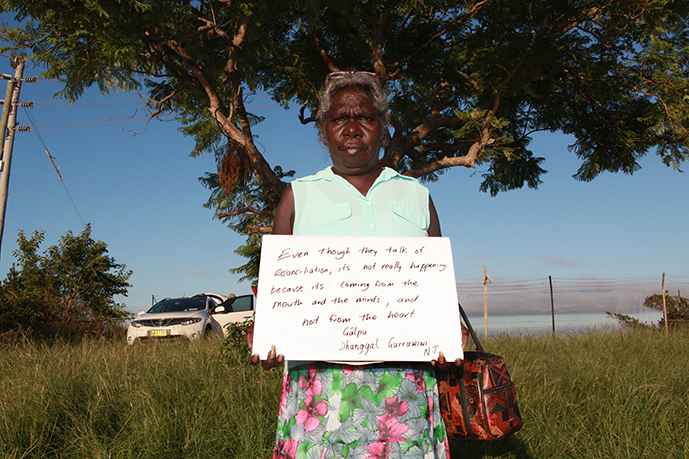 Even though they talk of
reconciliation, its not really happening
because its coming from the
mouth and the minds, and
not from the heart
Gälpu
Dhanggal Gurruwiwi
N.T